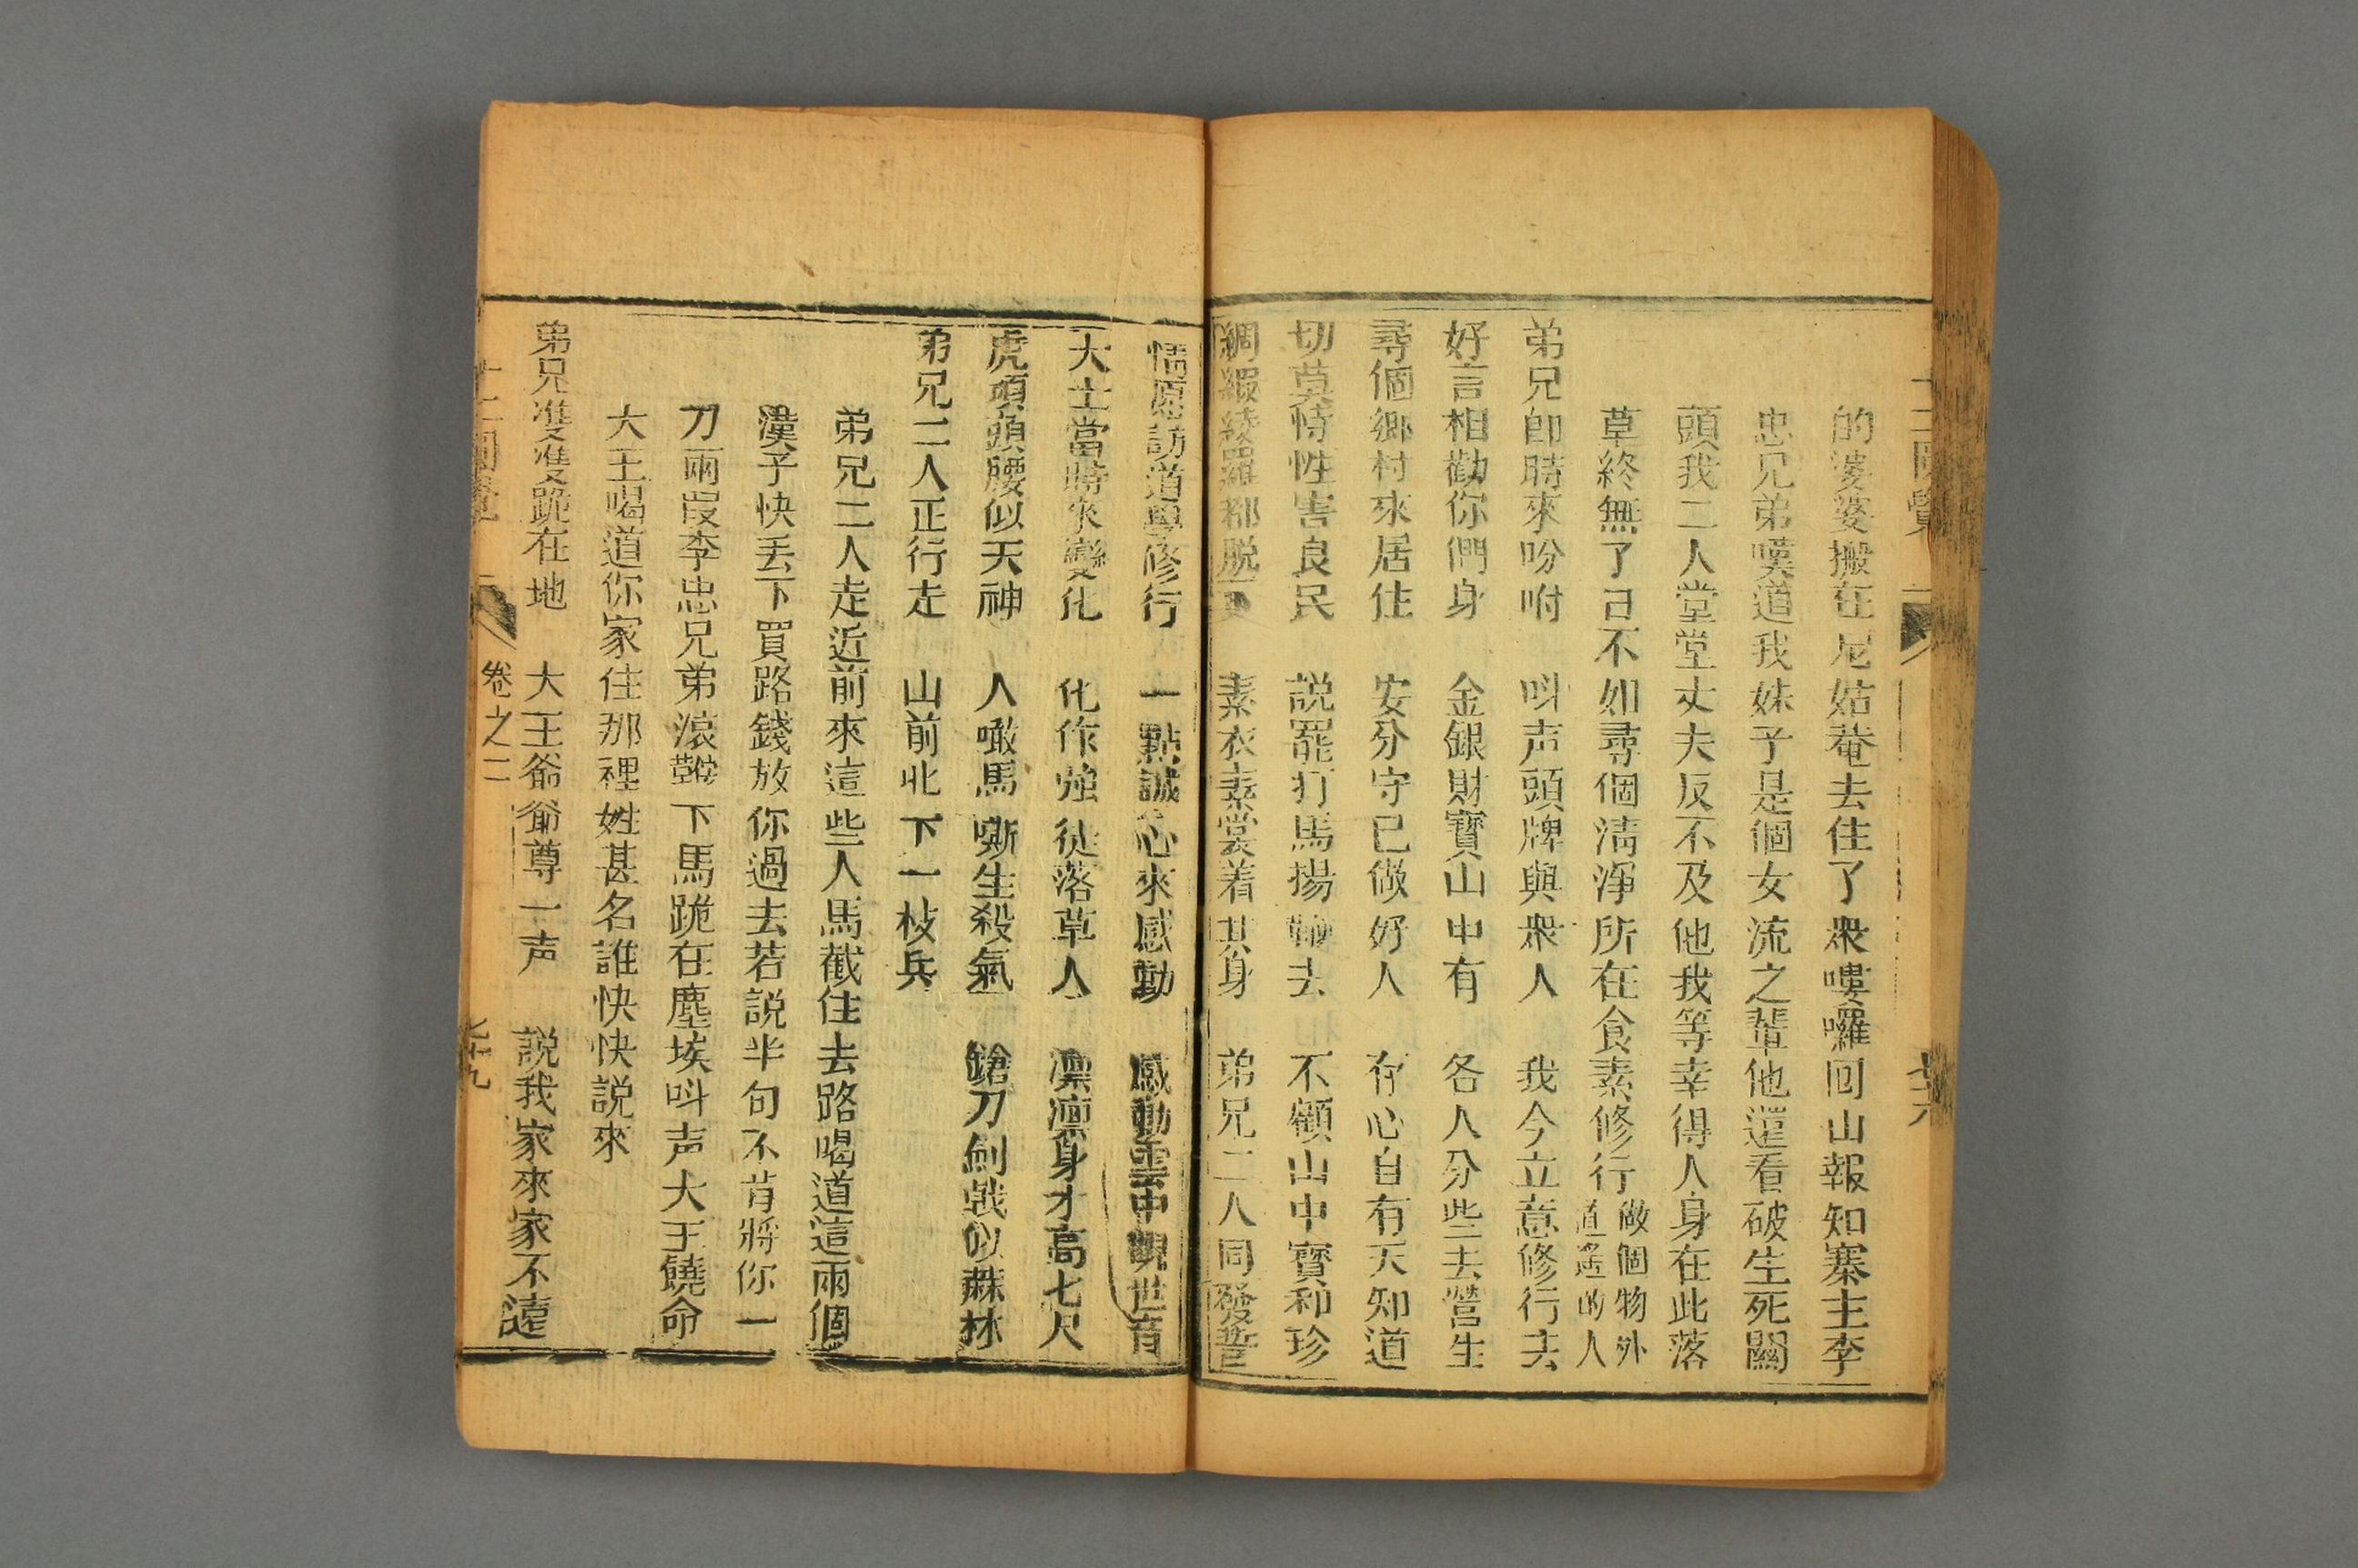 十二圓覺
的婆婆搬在尼姑菴去住了衆嘍囉回山報知寨主李
忠兄弟嘆道我妹子是個女流之輩他還看破生死關
頭我二人堂堂丈夫反不及他我等幸得人身在此落
草終無了日不如尋個清淨所在食素修行做個物外
逍遙的人
弟兄卽時來吩咐 呌声頭牌與衆人 我今立意修行去
好言相勸你們身 金銀財寶山中有 各人分些去營生
尋個鄉村來居住 安分守已做好人 存心自有天知道
切莫恃性害良民 說罷打馬揚鞭去 不顧山中寶和珍
綢緞綾羅都脫 素衣素裳着其身 弟兄二人同發誓
情愿訪道學修行 一點誠心來感動 感動雲中觀世音
大士當時來變化 化作強徒落草人 凛凛身才高七尺
虎項頭腰似天神 人噉馬嘶生殺氣 鎗刀劍戟似蔴林
弟兄二人正行走 山前北下一枝兵
弟兄二人走近前來這些人馬截住去路喝道這兩個
漢子快丟下買路錢放你過去若說半句不肯將你一
刀兩叚李忠兄弟滾鞍下馬跪在塵埃呌声大王饒命
大王喝道你家住那裡姓甚名誰快快說來
弟兄雙雙跪在地 大王爺爺尊一声 說我家來家不遠
十二圓覺 卷之二 七十九